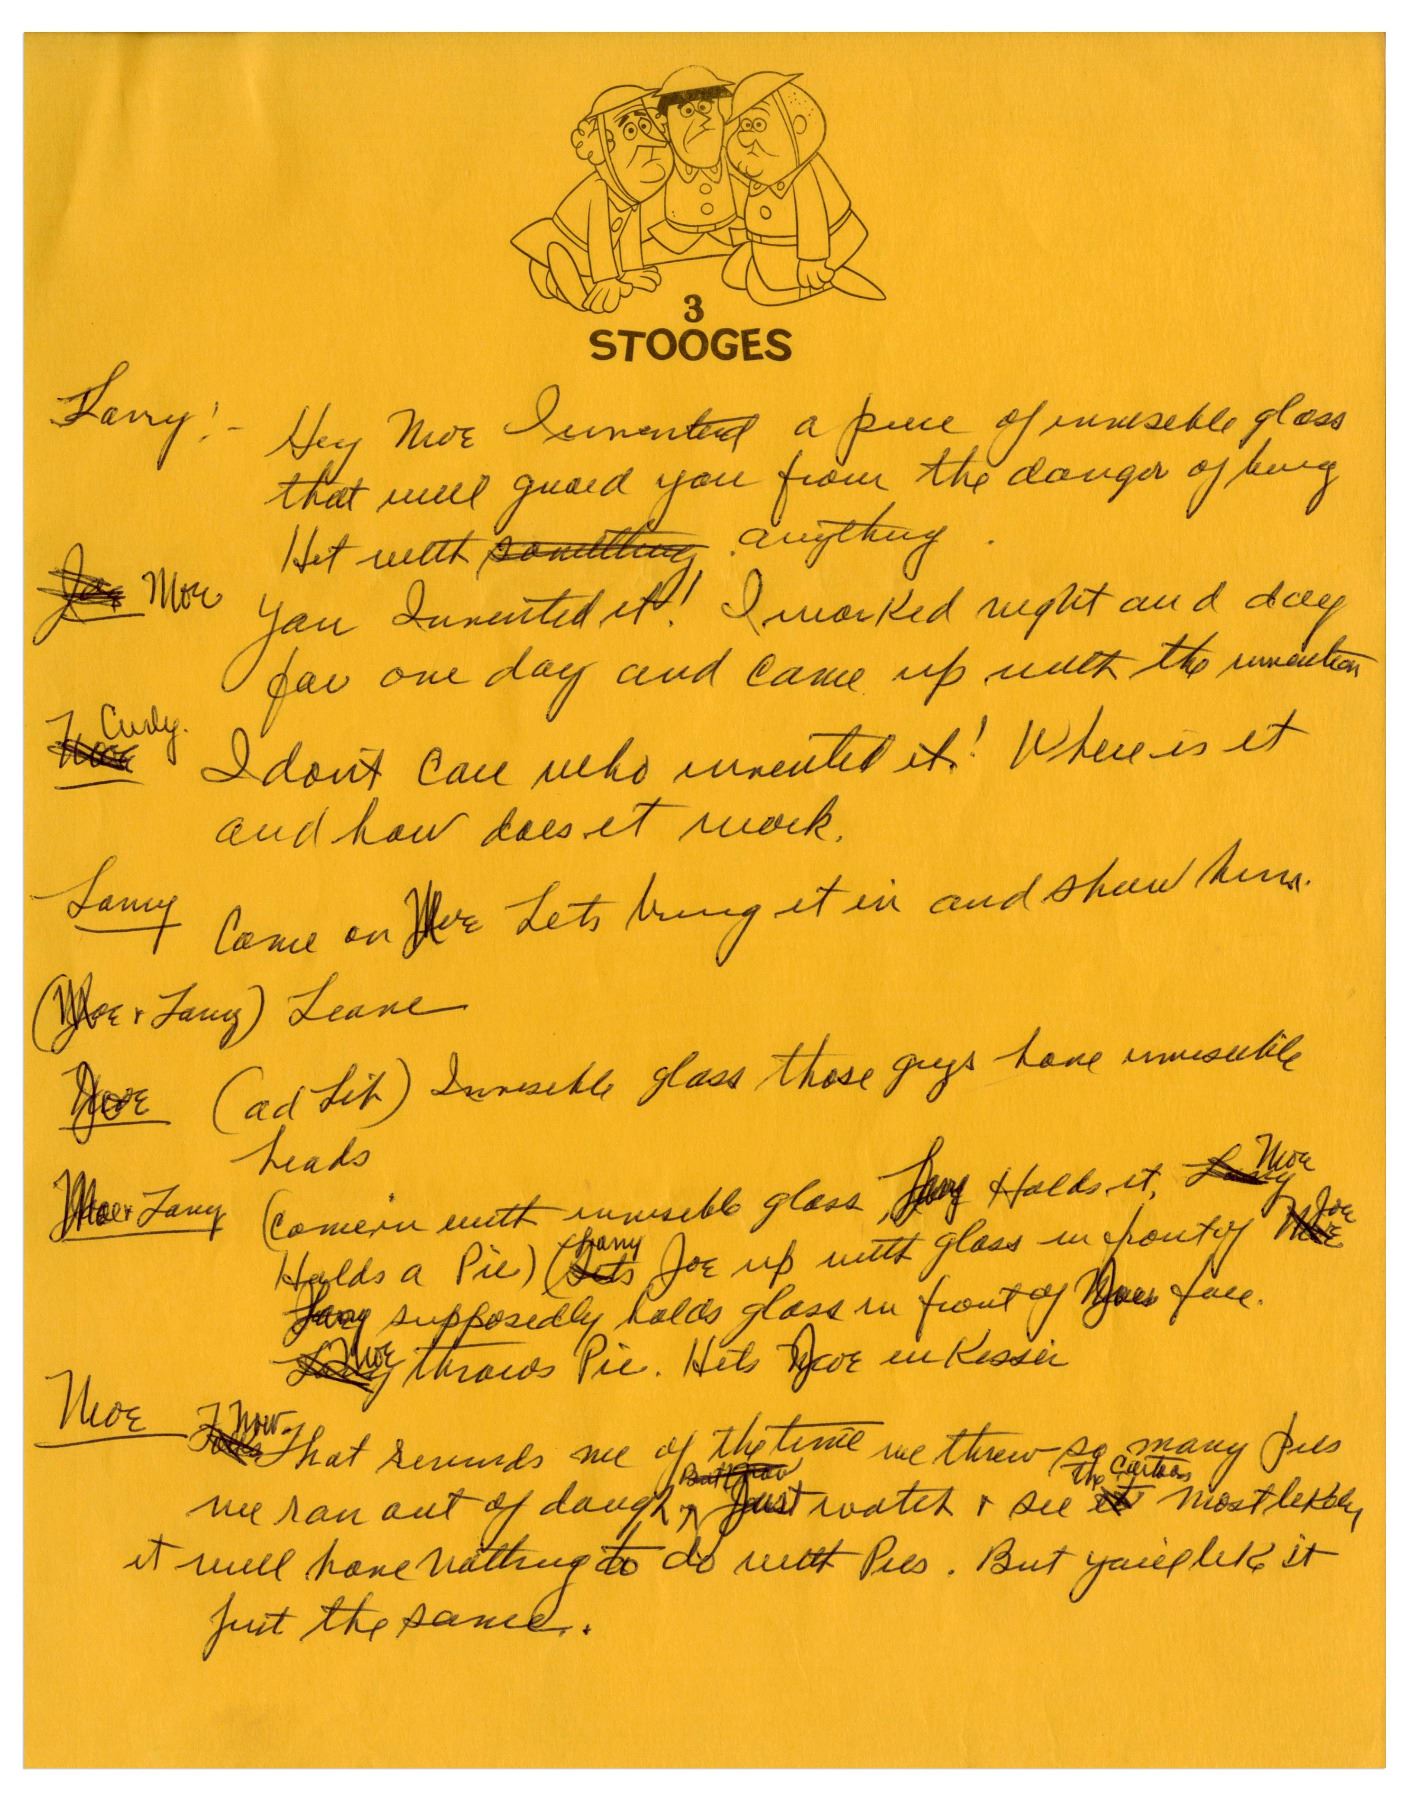 3
STOOGES
Larry!- Hey Moe I invented a piece of invisible glass
that will guard you from the danger of being
Hit with something anything.
Joe Moe You Invented it! I worked night and day
for one day and came up with the invention
Curly. Moe I don't care who invented it! Where is it
and how does it work.
Larry Come on Moe Lets bring it in and show him.
(Moe & Larry) Leave
Joe (ad Lib) Invisible glass those guys have invisible
heads
Moe & Larry (come in with invisible glass, Larry Holds it, Larry Moe
Holds a Pie) (Larry Sets Joe up with glass in front of Moe Joe
Larry supposedly holds glass in front of Joes face.
Larry Moe throws Pie. Hits Joe in Kisser
Moe Now. That reminds me of the time we threw so many pies
we ran out of dough, But now Just watch & see it the Cartoon Most likely
it will have Nothing to do with Pies. But you'll like it
just the same.